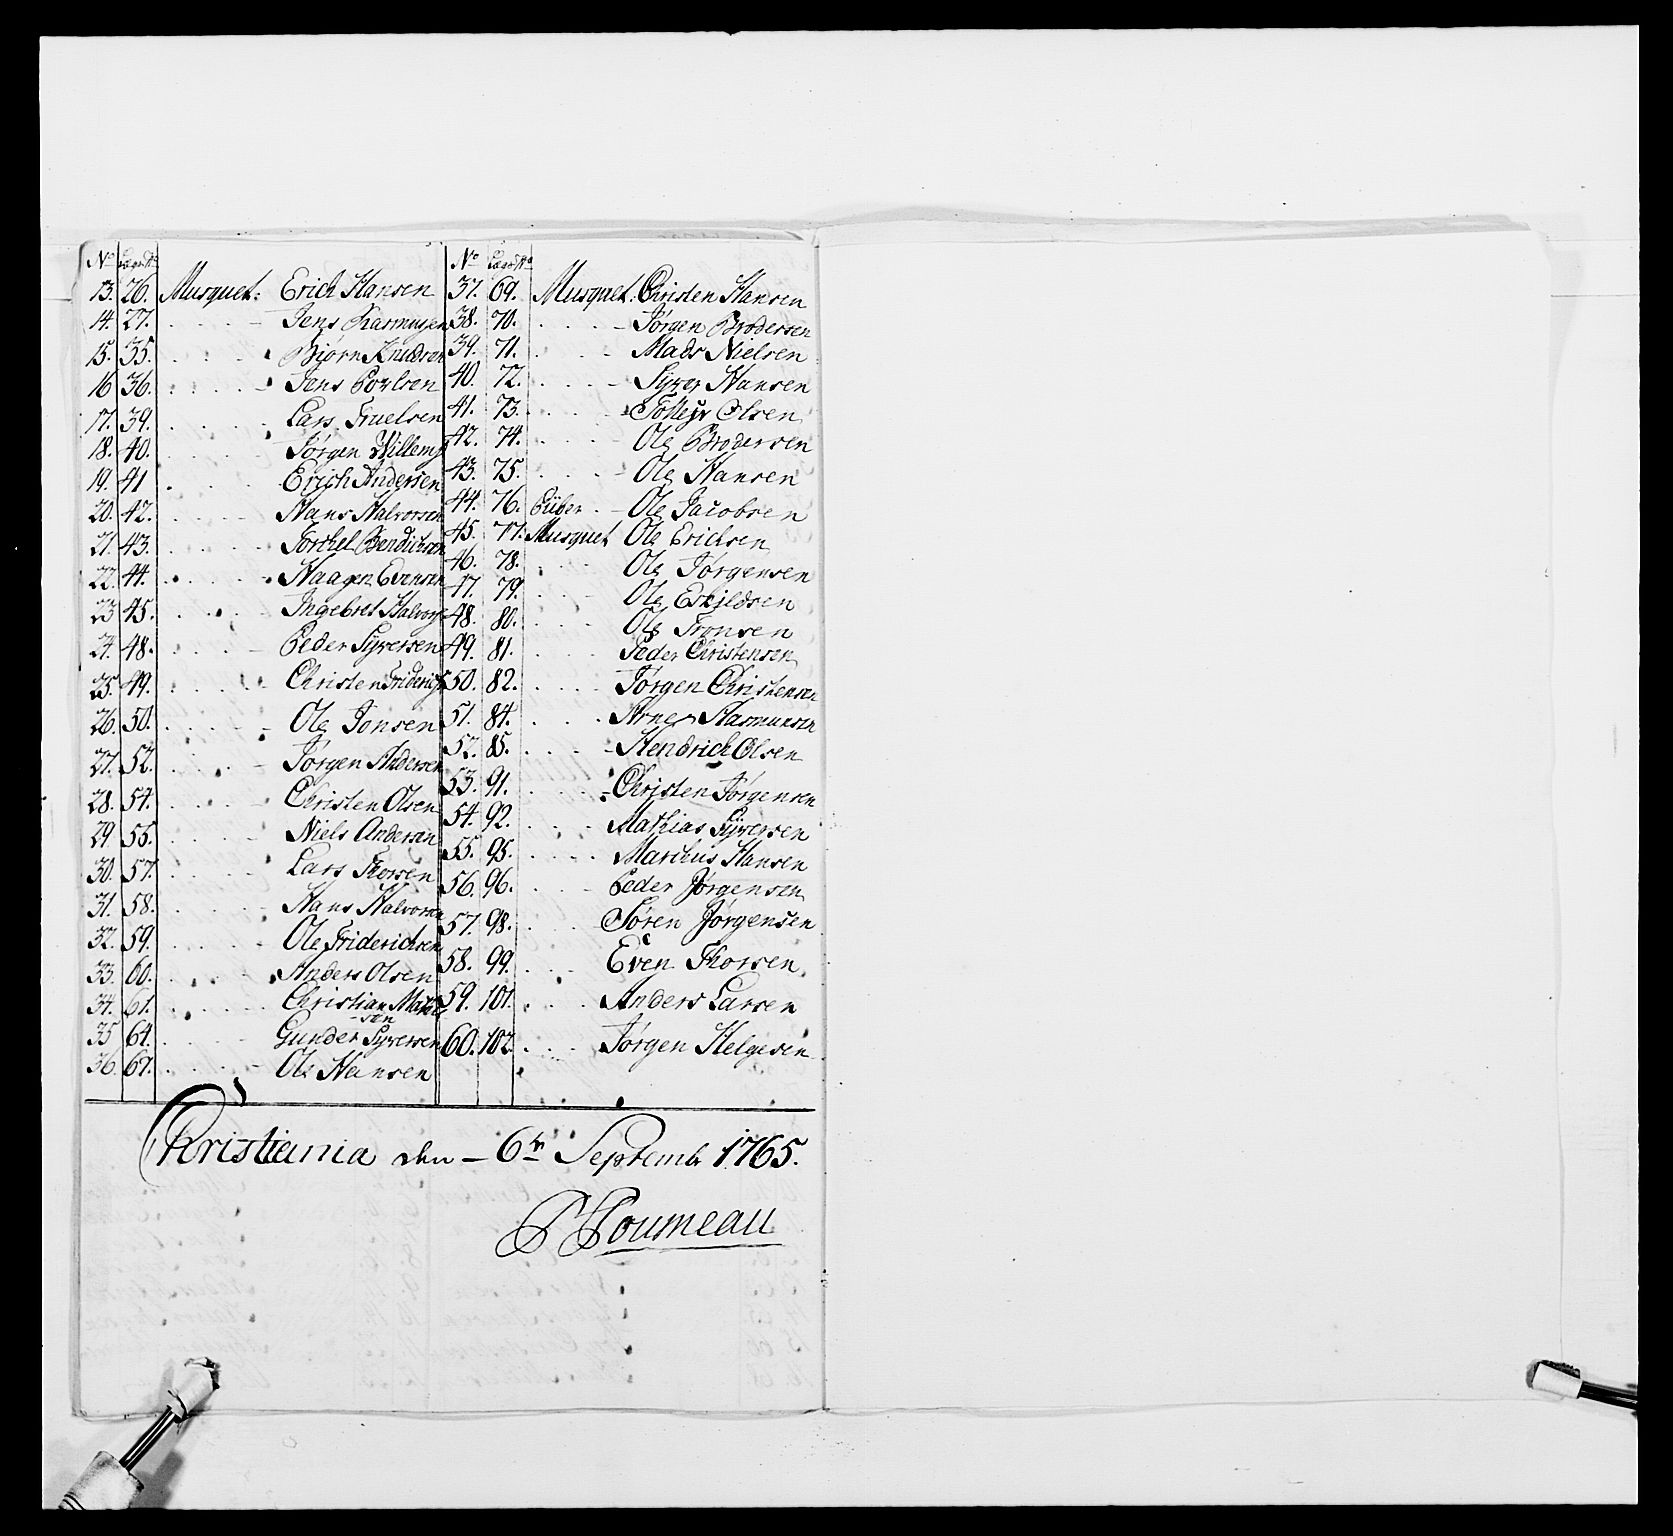 No Lægd No
13. 26. Musquet: Erich Hansen
14. 27. Jens Rasmussen
15. 35. Biørn Knudsen
16 36. Jens Povlsen
17. 39. Lars Truelsen
18. 40. Jørgen Willems
19. 41 Erich Andersen
20. 42. Hans Halvorsen
21. 43. Torchel Bendichsen
22. 44. Haagen Evensen
23 45. Ingebret Halvors
24. 48. Peder Syversen
25. 49. Christen Friderichs
26. 50. Ole Jonsen
27. 52. Jørgen Andersen
28. 54. Christen Olsen
29 55. Niels Andersen
30. 57. Lars Thorsen
31. 58. Hans Halvorsen
32. 59. Ole Friderichsen
33. 60. Anders Olsen
34. 61. Christian Mathi
-sen
35 64. Gunder Syversen
36. 67. Ole Hansen
No Lægd No
37. 69. Musquet: Christen Hansen
38. 70. Jørgen Brodersen
39. 71. Mads Nielsen
40. 72. Syver Hansen
41. 73. Tolleyv Olsen
42. 74. Ole Brodersen
43. 75. Ole Hansen
44. 76. Piiber Ole Jacobsen
45. 77. Musquet Ole Erichsen
46. 78. Ole Jørgensen
47. 79. Ole Eskildsen
48. 80. Ole Tronsen
49. 81. Peder Christensen
50. 82. Jørgen Christensen
51. 84. Arne Rasmunsen
52. 85. Hendrich Olsen
53. 91. Christen Jørgensen
54. 92. Mathias Syversen
55. 95. Marchus Hansen
56. 96. Peder Jørgensen
57. 98. Søren Jørgensen
58. 99. Even Thorsen
59. 101. Anders Larsen
60. 102. Jørgen Helgesen
Christiania den – 6tn Septembr 1765.
P Poumeau